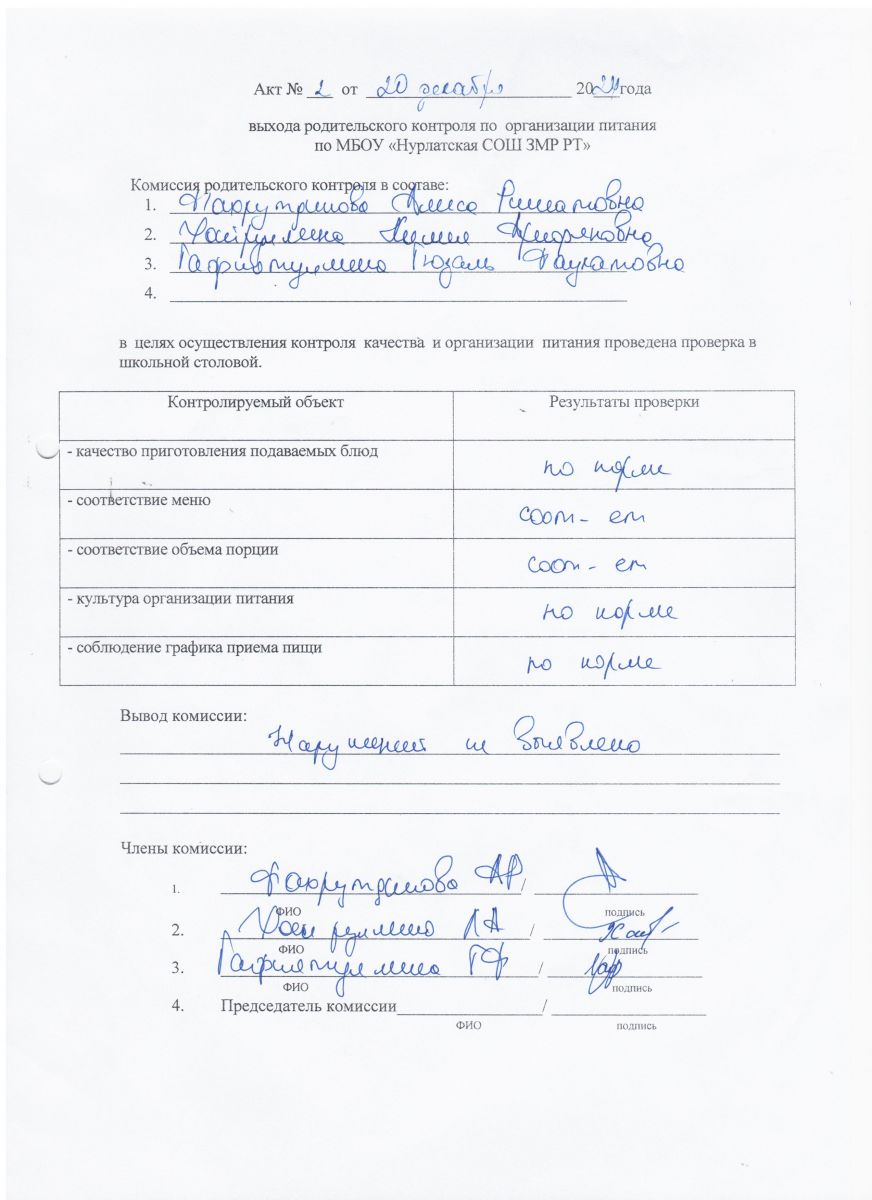 Акт № 2 от 20 декабря 2024 года
выхода родительского контроля по организации питания
по МБОУ «Нурлатская СОШ ЗМР РТ»
Комиссия родительского контроля в составе:
1. Алиса Ринатовна
2. Хайруллина
3. Гафиятуллина Гюзель
4.
в целях осуществления контроля качества и организации питания проведена проверка в
школьной столовой.
Контролируемый объект Результаты проверки
- качество приготовления подаваемых блюд по норме
- соответствие меню соот- ет
- соответствие объема порции соот- ет
- культура организации питания по норме
- соблюдение графика приема пищи по норме
Вывод комиссии:
Нарушений не выявлено
Члены комиссии:
1. АР /
ФИО подпись
2. Хайруллина ЛА /
ФИО подпись
3. Гафиятуллина ГФ /
ФИО подпись
4. Председатель комиссии /
ФИО подпись